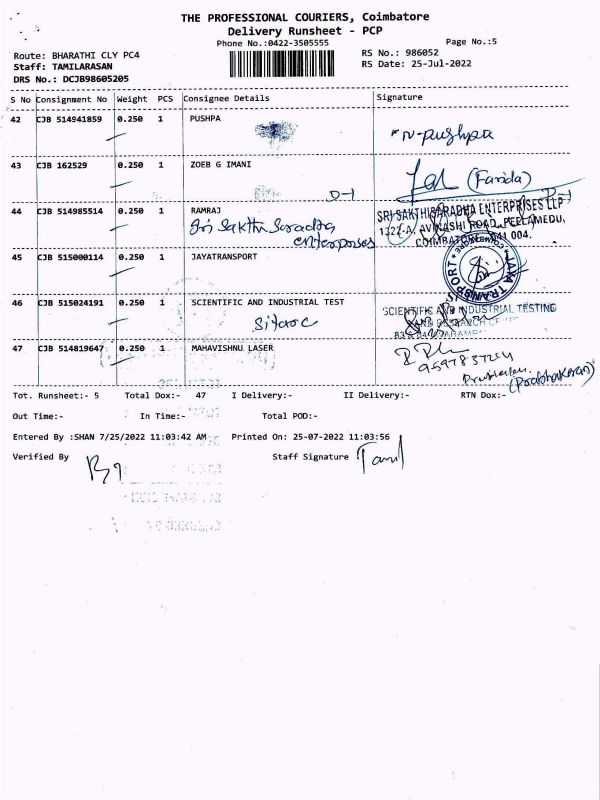 THE PROFESSIONAL COURIERS, Coimbatore
Delivery Runsheet - PCP
Phone No.:0422-3505555
Page No.:5
Route: BHARATHI CLY PC4
RS No.: 986052
Staff: TAMILARASAN
RS Date: 25-Jul-2022
DRS No.: DCJB98605205
S No Consignment No Weight PCS Consignee Details Signature
42 CJB 514941859 0.250 1 PUSHPA
N-pushpa
43 CJB 162529 0.250 1 ZOEB G IMANI
(Farida)
D-1
44 CJB 514985514 0.250 1 RAMRAJ
Sri Sakthi Saradha
enterprises
SRI SAKTHI SARADHA ENTERPRISES LLP
1327-A, AVINASHI ROAD, PEELAMEDU,
COIMBATORE - 641 004.
45 CJB 515000114 0.250 1 JAYATRANSPORT
JAYA TRANSPORT
46 CJB 515024191 0.250 1 SCIENTIFIC AND INDUSTRIAL TEST
Sitarc
SCIENTIFIC AND INDUSTRIAL TESTING
AND RESEARCH CENTRE
47 CJB 514819647 0.250 1 MAHAVISHNU LASER
(Prabhakaran)
Tot. Runsheet:- 5 Total Dox:- 47 I Delivery:- II Delivery:- RTN Dox:-
Out Time:- In Time:- Total POD:-
Entered By :SHAN 7/25/2022 11:03:42 AM Printed On: 25-07-2022 11:03:56
Verified By Staff Signature Tamil